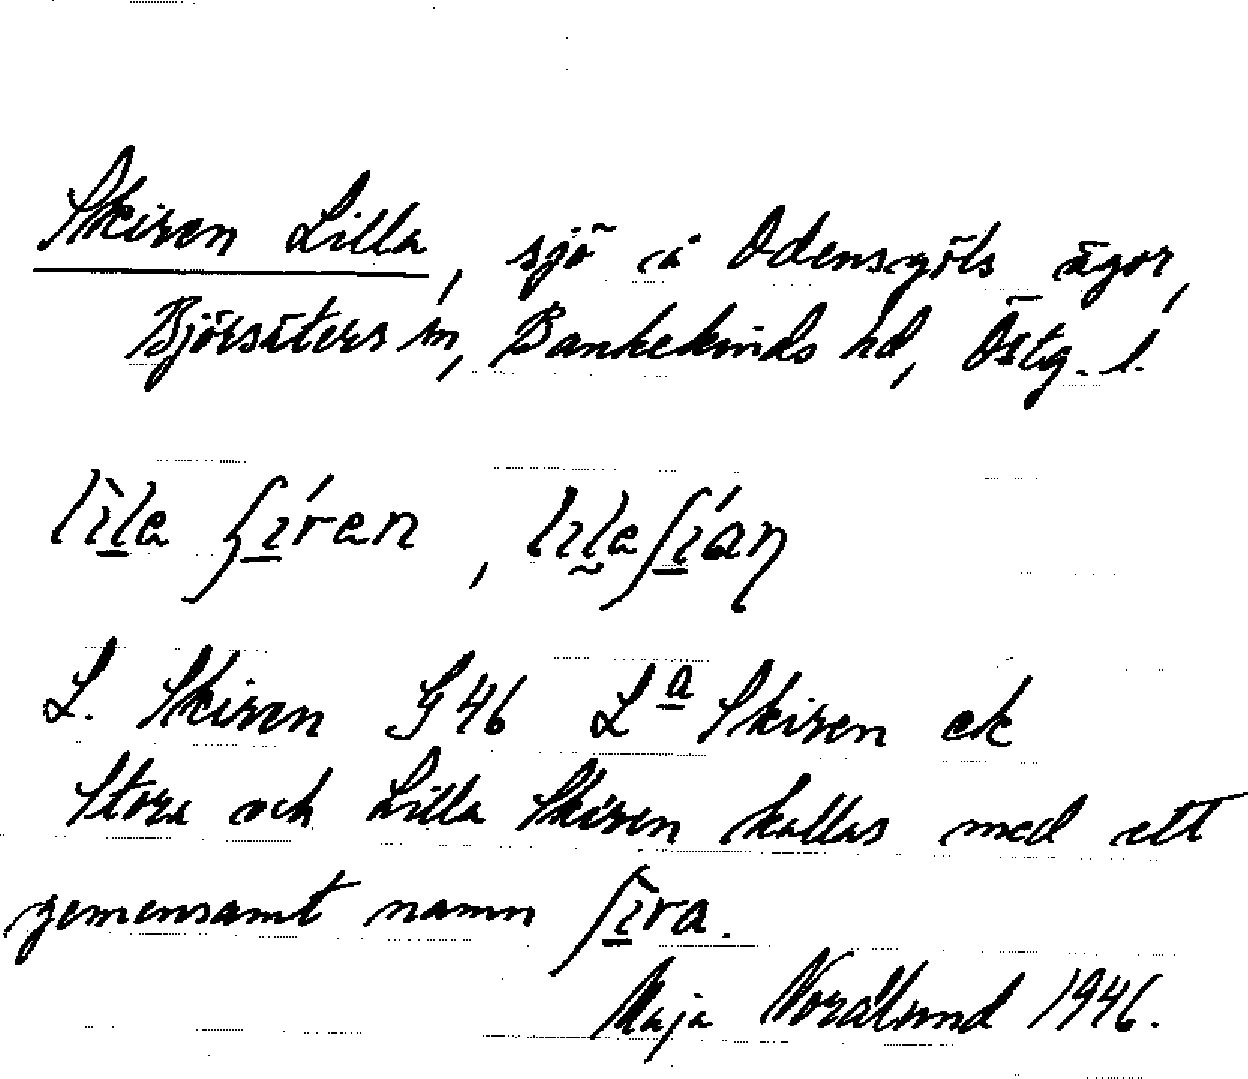 Skiren Lilla, sjö å Odensgöls ägor,
Björsäters sn, Bankekinds hd, Östg. l.
L. Skiren G 46 Lª Skiren ek
Stora och Lilla Skiren kallas med ett
gemensamt namn ʃìra.
Maja Nordlund 1946.